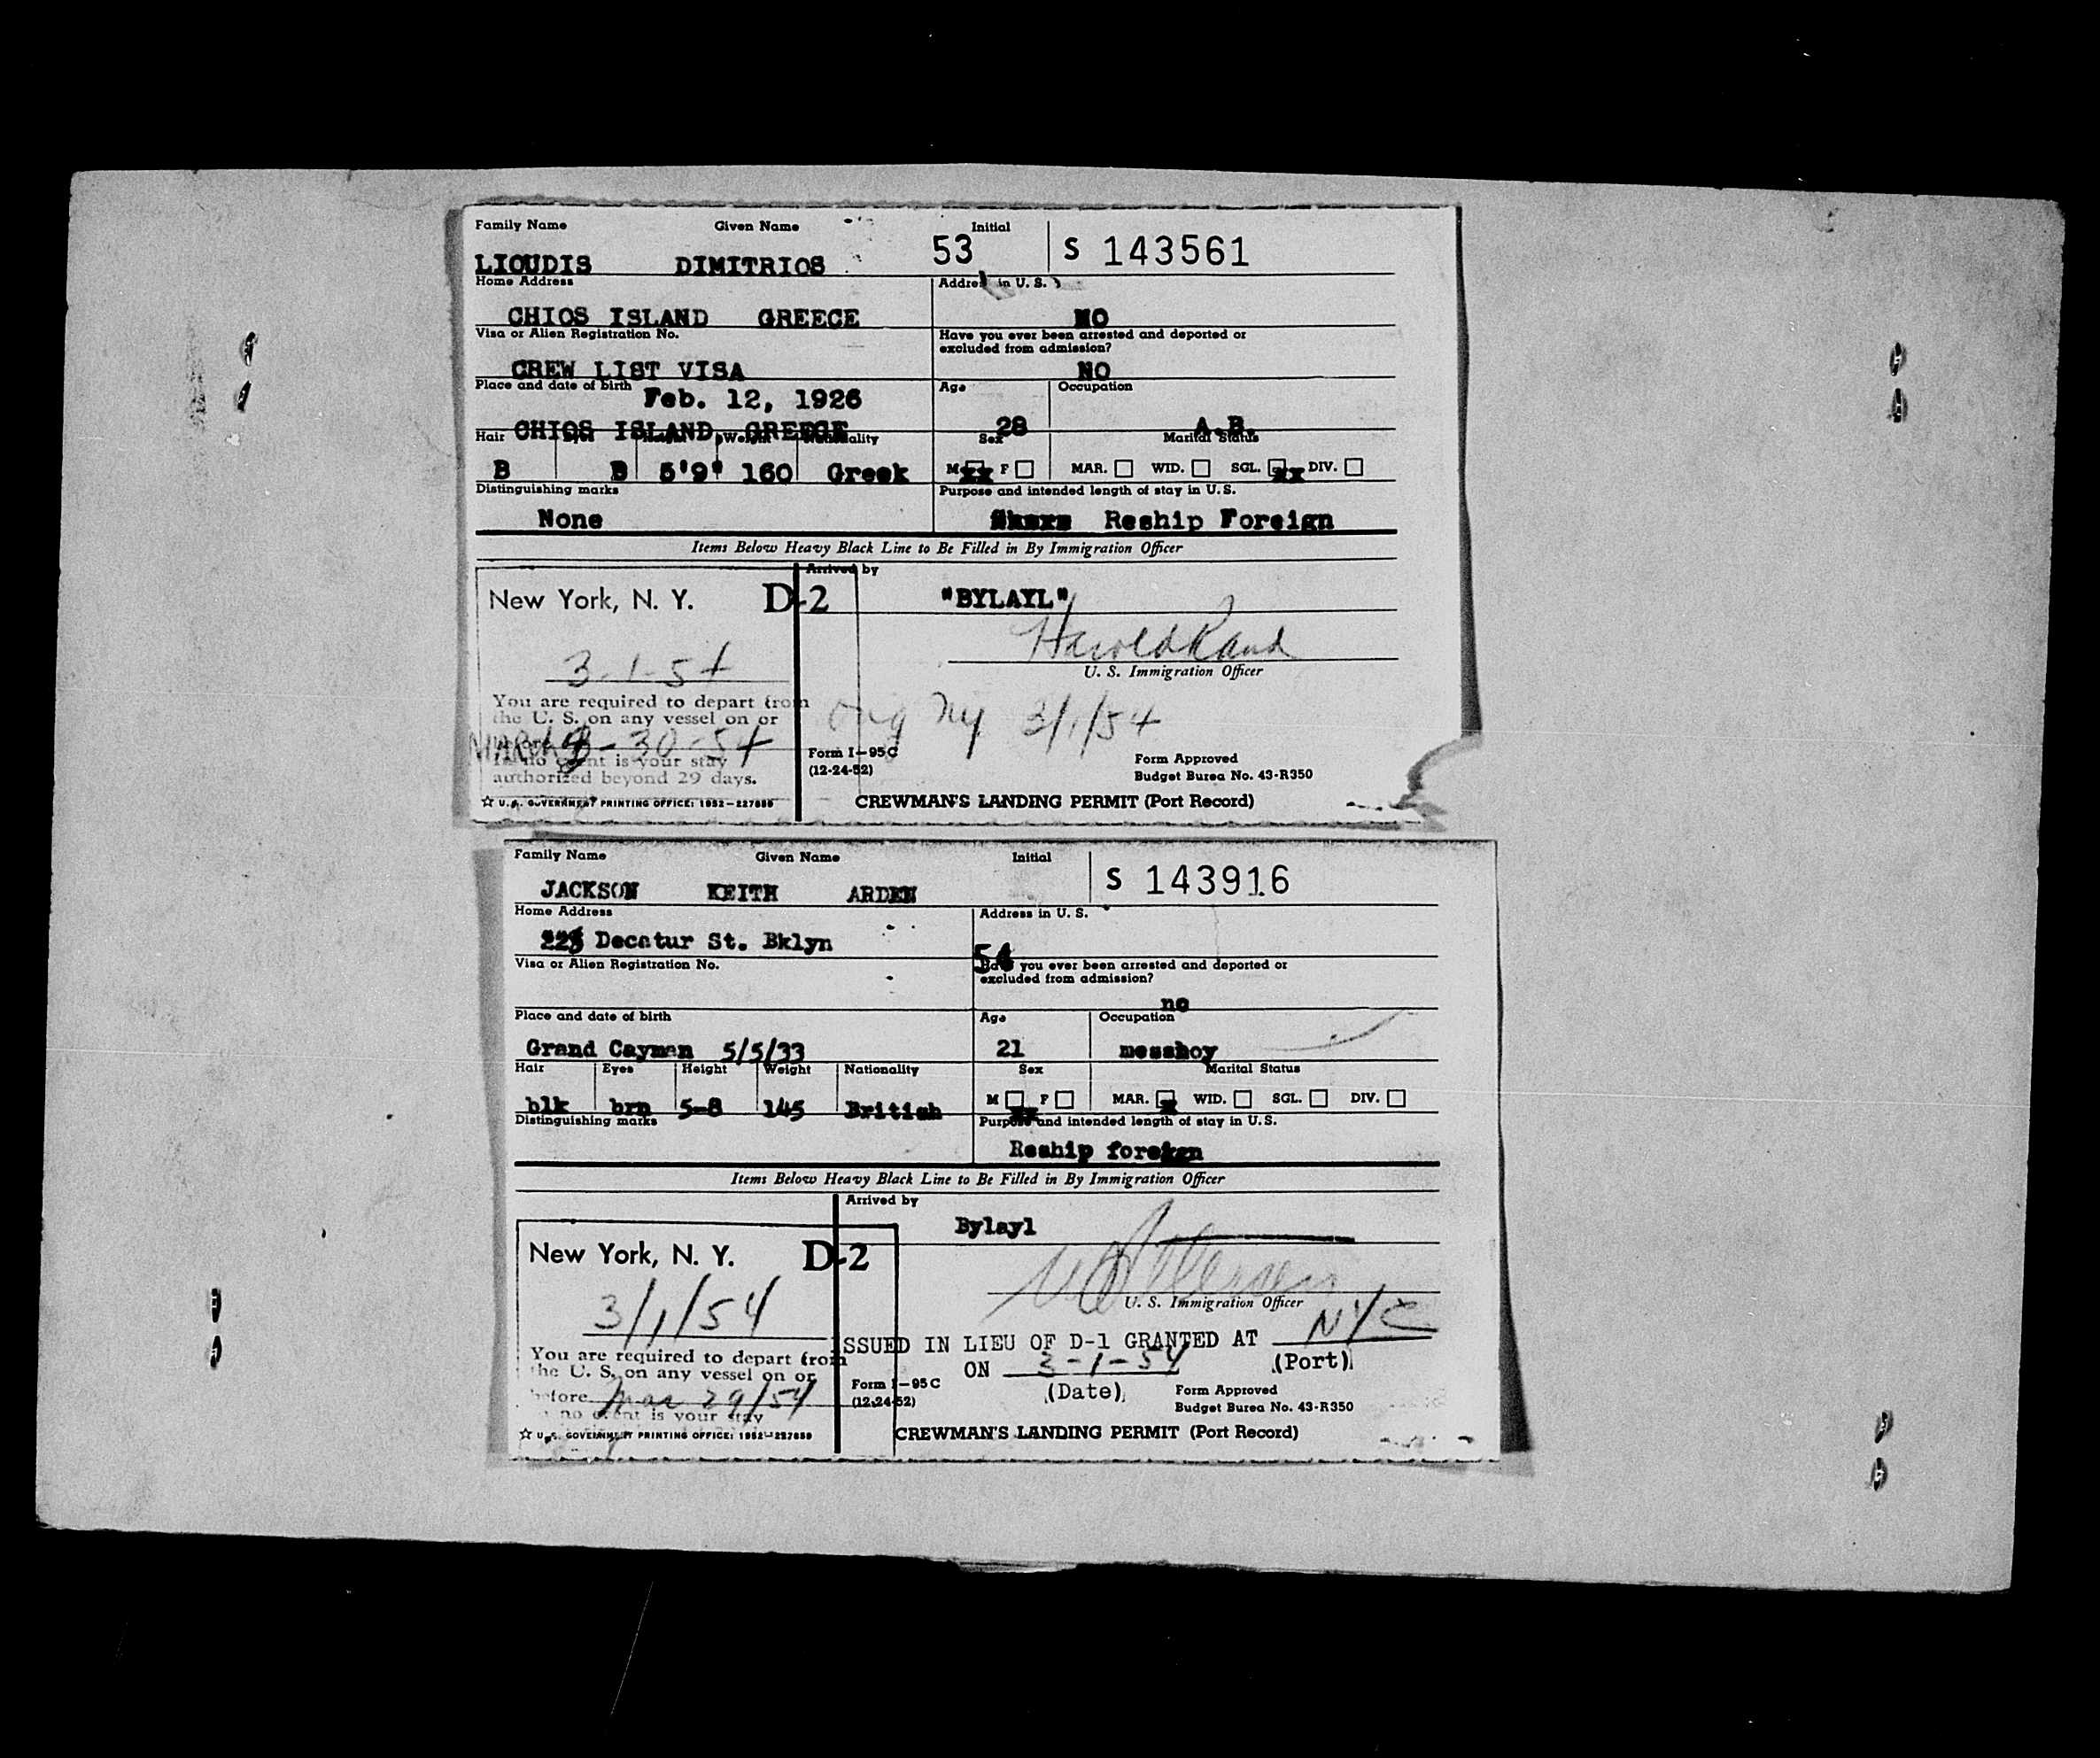 Family Name Given Name Initial
LIOUDIS DIMITRIOS 53 S 143561
Home Address Address in U. S.
CHIOS ISLAND GREECE NO
Visa or Alien Registration No. Have you ever been arrested and deported or
excluded from admission?
CREW LIST VISA NO
Place and date of birth Age Occupation
Feb. 12, 1926
CHIOS ISLAND, GREECE 28 A.B.
Hair Weight Nationality Sex Marital Status
B B 5'9" 160 Greek M xx F MAR. WID. SGL. xx DIV.
Distinguishing marks Purpose and intended length of stay in U.S.
None Reship Foreign
Items Below Heavy Black Line to Be Filled in By Immigration Officer
Arrived by
New York, N. Y. D-2 "BYLAYL"
Harold Rand
3-1-54 U. S. Immigration Officer
You are required to depart from
the U. S. on any vessel on or
Orig NY 3/1/54
30-54
In no event is your stay
authorized beyond 29 days.
Form I-95C Form Approved
(12-24-52) Budget Burea No. 43-R350
☆ U.S. GOVERNMENT PRINTING OFFICE: 1952-227689 CREWMAN'S LANDING PERMIT (Port Record)
Family Name Given Name Initial
JACKSON KEITH ARDEN S 143916
Home Address Address in U. S.
Decatur St. Bklyn
54
Visa or Alien Registration No. Have you ever been arrested and deported or
excluded from admission?
no
Place and date of birth Age Occupation
Grand Cayman 5/5/33 21 messboy
Hair Eyes Height Weight Nationality Sex Marital Status
blk brn 5-8 145 British M xx F MAR. x WID. SGL. DIV.
Distinguishing marks Purpose and intended length of stay in U.S.
Reship foreign
Items Below Heavy Black Line to Be Filled in By Immigration Officer
Arrived by
Bylayl
New York, N. Y. D-2
3/1/54 U. S. Immigration Officer
ISSUED IN LIEU OF D-1 GRANTED AT NYC
You are required to depart from
the U. S. on any vessel on or
ON 3-1-54 (Port)
before Mar 29/54
(Date)
In no event is your stay
Form I-95C Form Approved
(12-24-52) Budget Burea No. 43-R350
☆ U.S. GOVERNMENT PRINTING OFFICE: 1952-227689 CREWMAN'S LANDING PERMIT (Port Record)